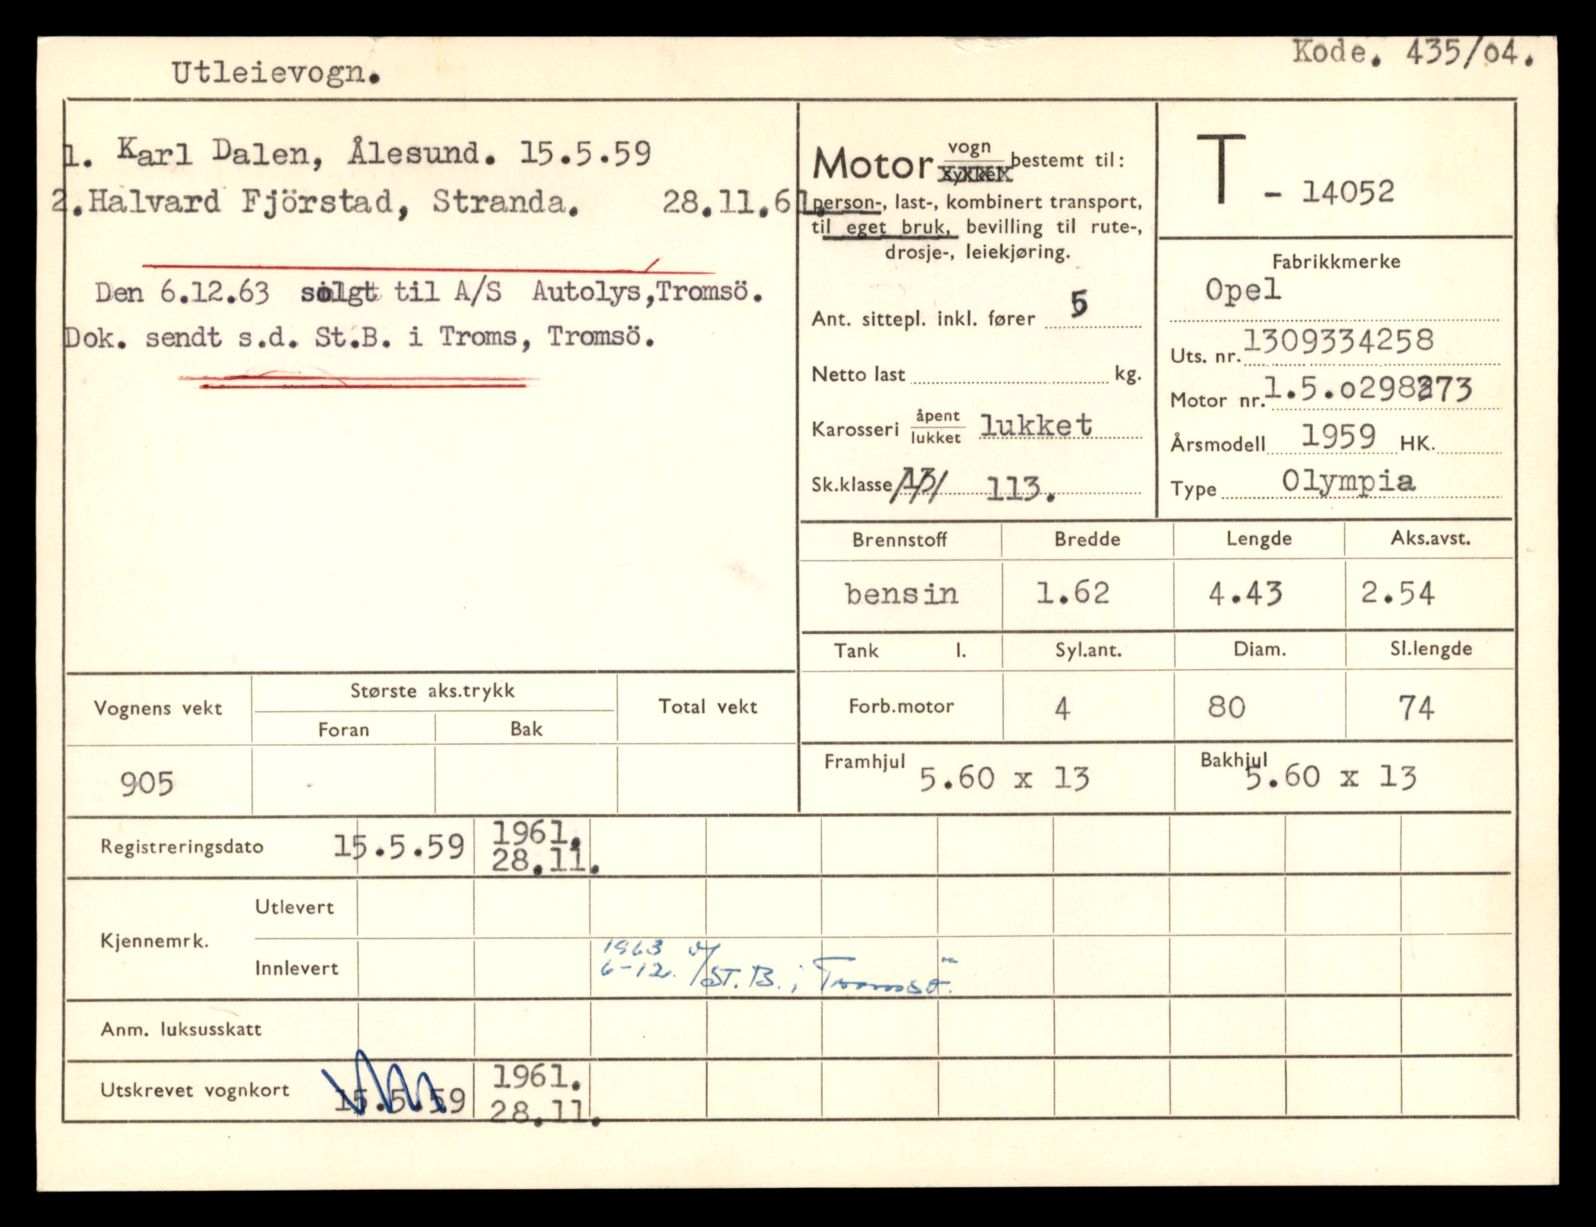 Utleievogn.
Kode. 435/o4.
1. Karl Dalen, Ålesund. 15.5.59
2. Halvard Fjörstad, Stranda. 28.11.61.
Den 6.12.63 solgt til A/S Autolys, Tromsö.
Dok. sendt s.d. St.B. i Troms, Tromsö.
Motor vogn bestemt til:
person-, last-, kombinert transport,
til eget bruk, bevilling til rute-,
drosje-, leiekjøring.
Ant. sittepl. inkl. fører 5
Netto last kg.
Karosseri åpent lukket lukket
Sk.klasse 113.
T - 14052
Fabrikkmerke
Opel
Uts. nr. 1309334258
Motor nr. 1.5.o298373
Årsmodell 1959 HK.
Type Olympia
Brennstoff Bredde Lengde Aks.avst.
bensin 1.62 4.43 2.54
Tank l. Syl.ant. Diam. Sl.lengde
Forb.motor 4 80 74
Framhjul 5.60 x 13 Bakhjul 5.60 x 13
Vognens vekt Største aks.trykk Total vekt
Foran Bak
905
Registreringsdato 15.5.59 1961.
28.11.
Kjennemrk. Utlevert
Innlevert 1963
6-12. v/ St. B. i Tromsö.
Anm. luksusskatt
Utskrevet vognkort 15.5.59 1961.
28.11.